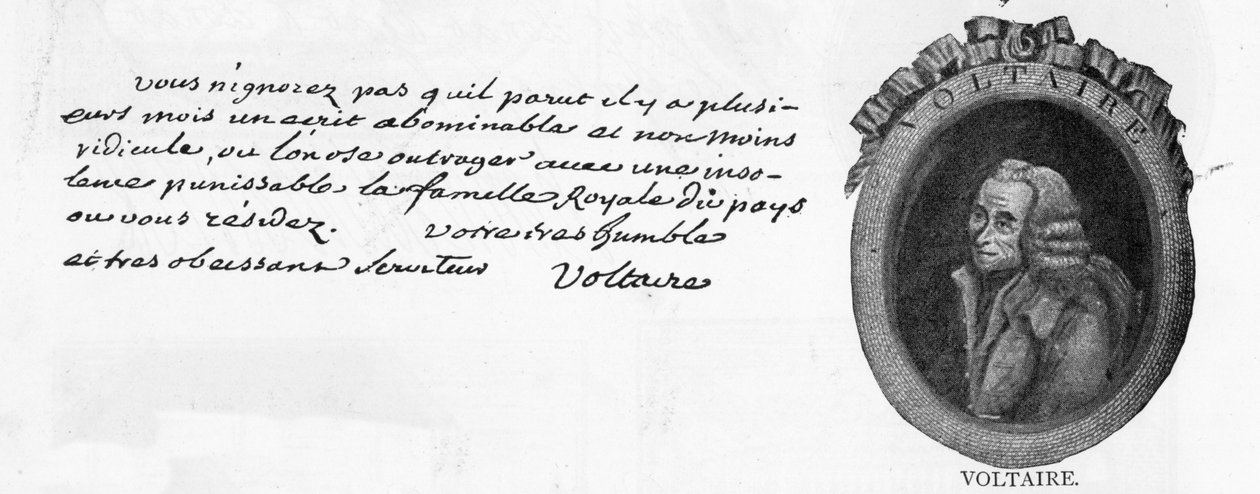 vous n'ignorez pas qu'il parut il y a plusi-
eurs mois un ecrit abominable et non moins
ridicule, ou l'on ose outrager avec une inso-
lence punissable la famille Royale du pays
ou vous résidez. votre tres humble
et tres obeissant serviteur Voltaire
VOLTAIRE
VOLTAIRE.